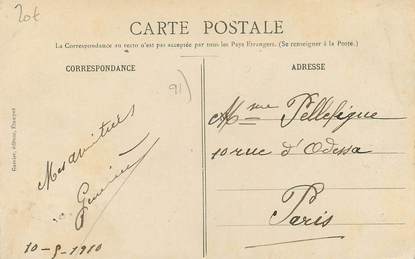 20€
CARTE POSTALE
La Correspondance au recto n'est pas acceptée par tous les Pays Etrangers. (Se renseigner à la Poste.)
CORRESPONDANCE
ADRESSE
91)
Garnier, éditeur, Etampes
Mes amitiés
10-9-1910
Mme Pellefigue
10 rue d'Odessa
Paris